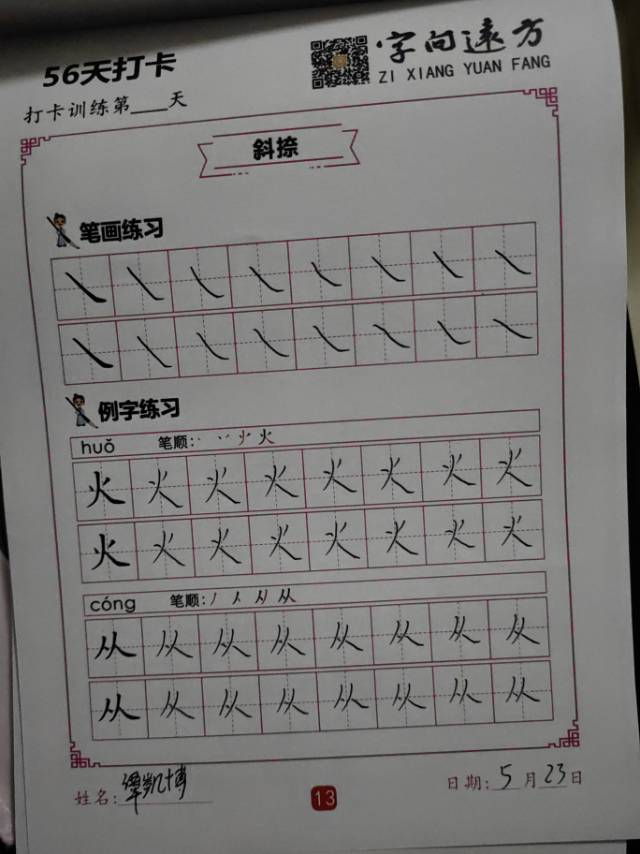 56天打卡
字向远方
ZI XIANG YUAN FANG
打卡训练第___天
斜捺
笔画练习
例字练习
huǒ 笔顺:
火 火 火 火 火 火 火 火
火 火 火 火 火 火 火 火
cóng 笔顺:
从 从 从 从 从 从 从 从
从 从 从 从 从 从 从 从
姓名:谭凯博
13
日期:5月23日